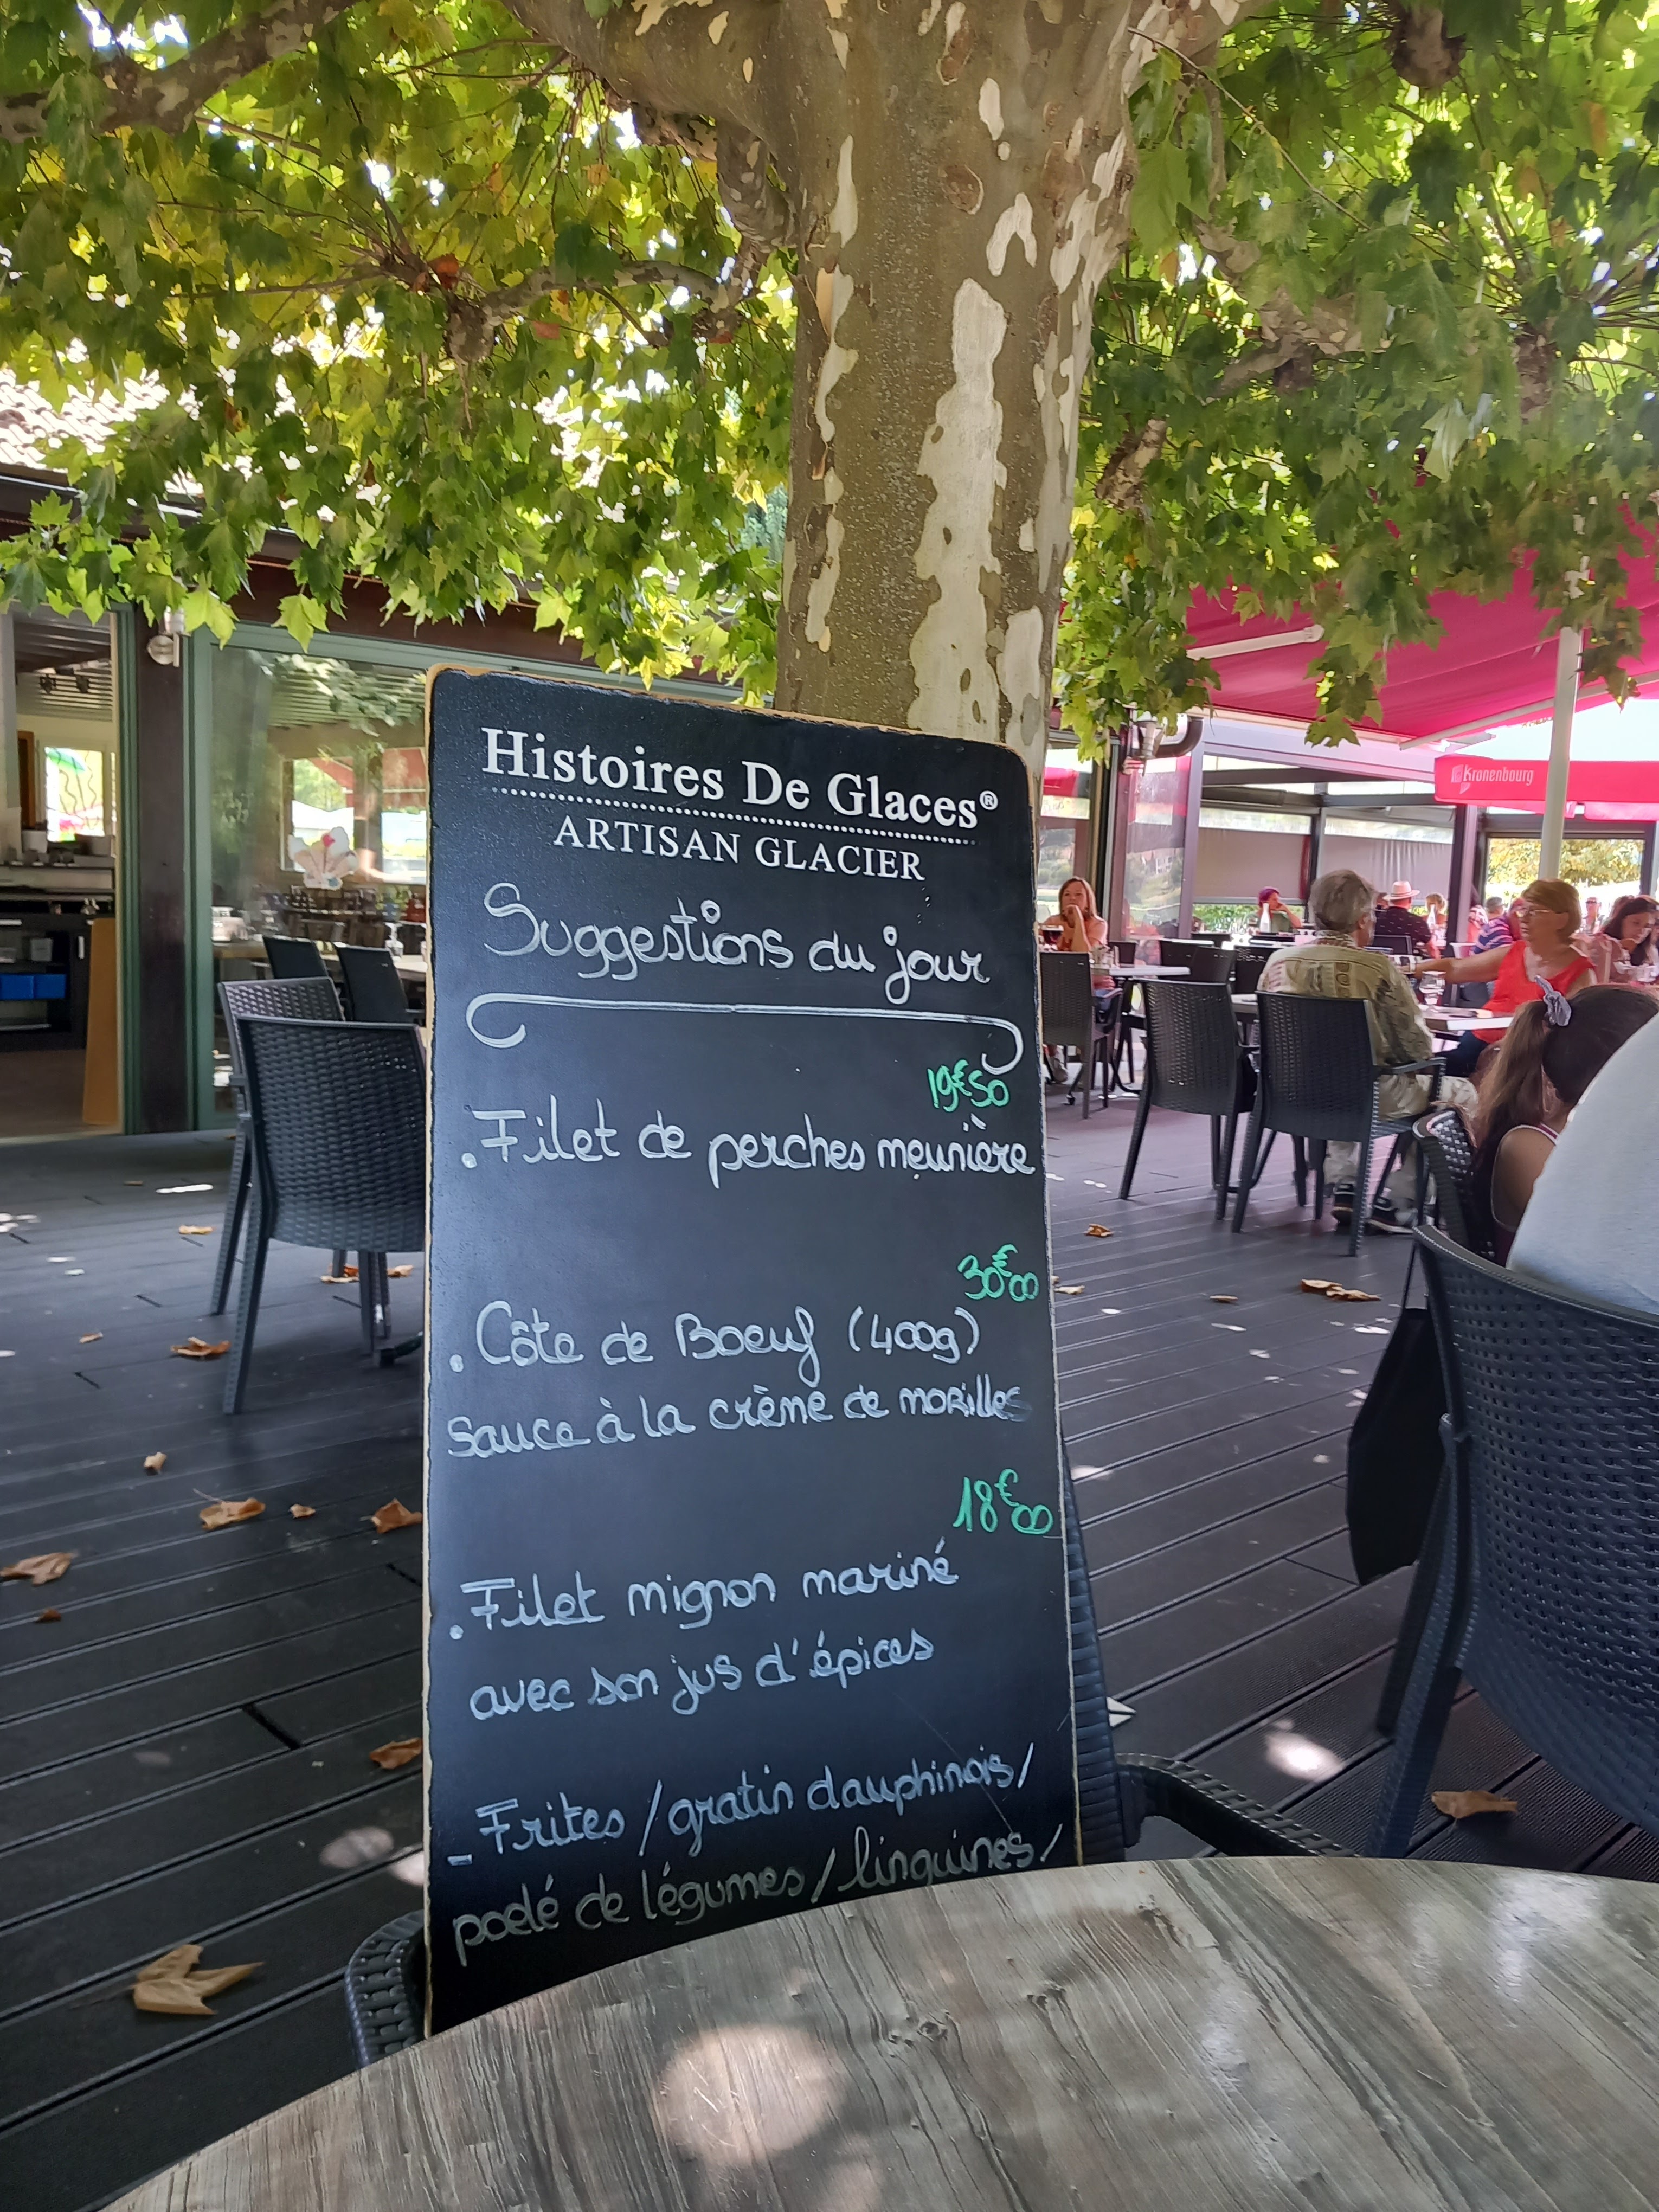 Histoires De Glaces®
ARTISAN GLACIER
Suggestions du jour
19€50
. Filet de perches meunière
30€00
. Côte de Boeuf (400g)
sauce à la crème de morilles
18€00
. Filet mignon mariné
avec son jus d'épices
- Frites / gratin dauphinois /
poelé de légumes / linguines /
Kronenbourg